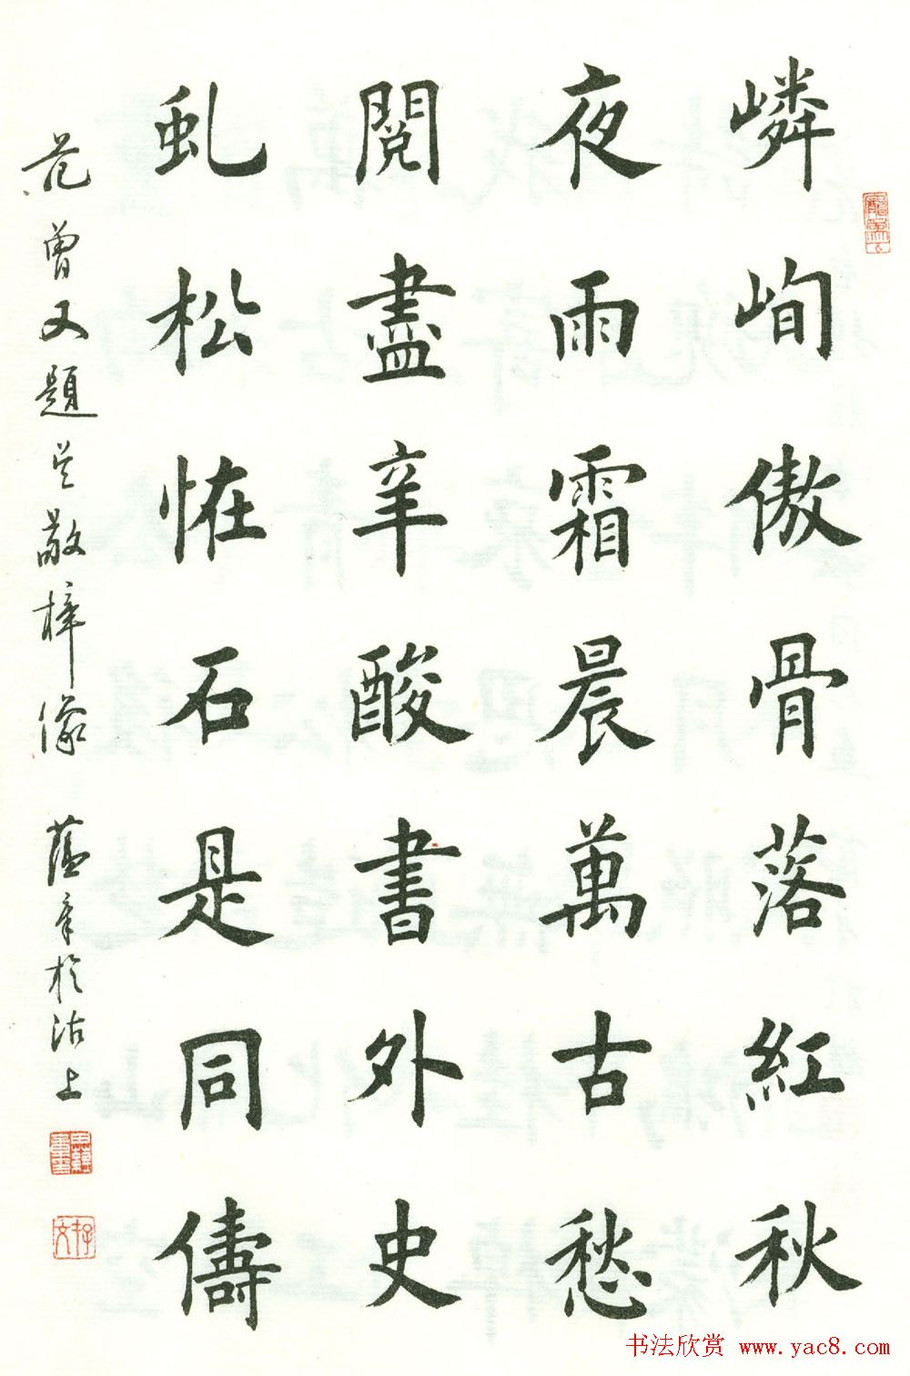 嶙峋傲骨落紅秋
夜雨霜晨萬古愁
閱盡辛酸書外史
虬松恠石是同儔
范曾又題吳敬梓像
蘊章於沽上
书法欣赏 www.yac8.com